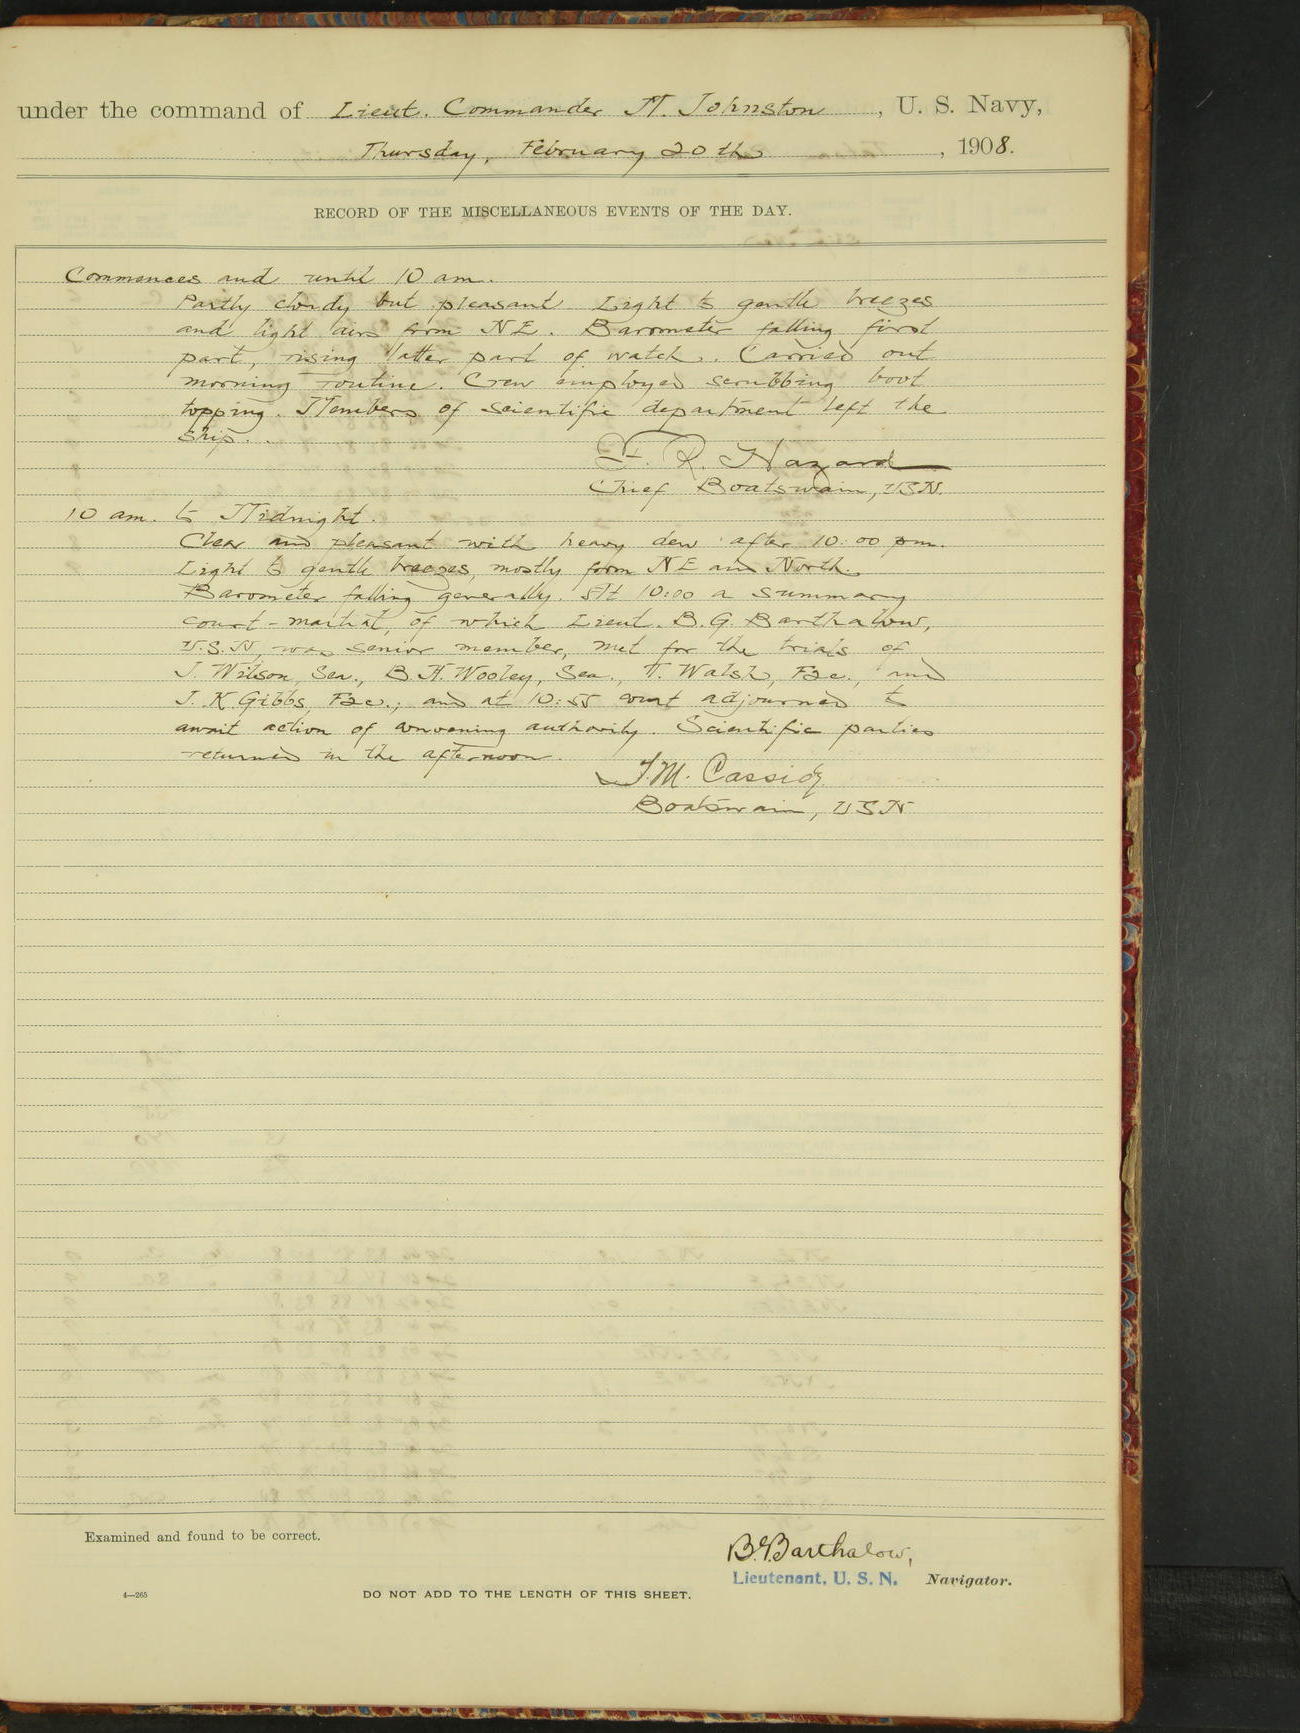 under the command of Lieut. Commander M. Johnston, U. S. Navy,
Thursday, February 20th, 1908.
RECORD OF THE MISCELLANEOUS EVENTS OF THE DAY.
Commences and until 10 am.
Partly cloudy but pleasant. Light to gentle breezes
and light airs from NE. Barometer falling first
part, rising latter part of watch. Carried out
morning routine. Crew employed scrubbing boot
topping. Members of scientific department left the
ship.
F. R. Hazard
Chief Boatswain, USN.
10 am. to Midnight.
Clear and pleasant with heavy dew after 10:00 pm.
Light to gentle breezes, mostly from NE and North.
Barometer falling generally. At 10:00 a summary
court-martial, of which Lieut. B. G. Barthalow,
U.S.N, was senior member, met for the trials of
J. Wilson, Sea., B. H. Wooley, Sea., T. Walsh, F2c., and
J. K. Gibbs, F2c.; and at 10:55 court adjourned to
await action of convening authority. Scientific parties
returned in the afternoon.
J. M. Cassidy
Boatswain, USN
Examined and found to be correct.
B.G. Barthalow,
Lieutenant, U. S. N. Navigator.
4—265
DO NOT ADD TO THE LENGTH OF THIS SHEET.